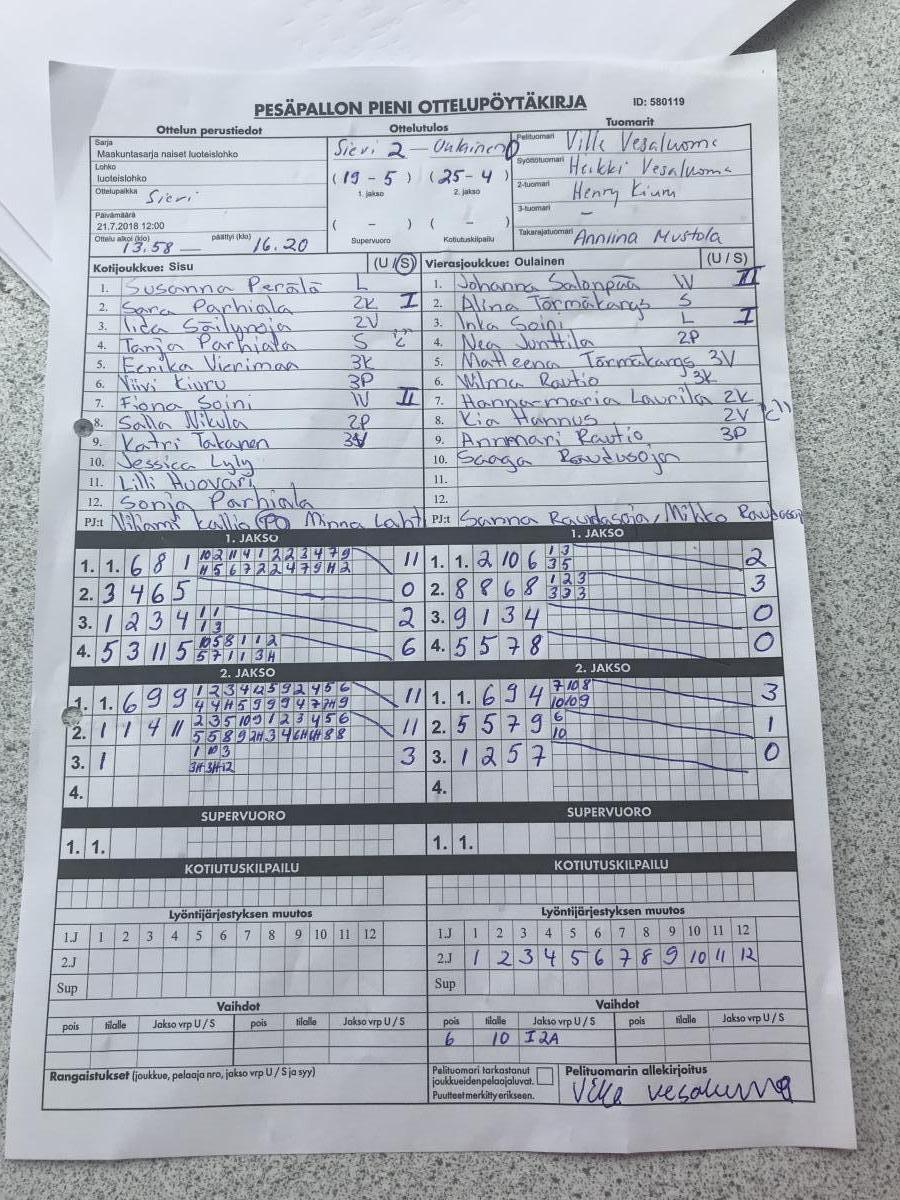 PESÄPALLON PIENI OTTELUPÖYTÄKIRJA ID: 580119
Ottelun perustiedot Ottelutulos Tuomarit
Sarja
Maakuntasarja naiset luoteislohko
Lohko
luoteislohko
Ottelupaikka Sieri
Päivämäärä
21.7.2018 12:00
Ottelu alkoi (klo) 13.58 — päättyi (klo) 16.20
Sieri 2 — Oulainen 0
(19 - 5) (25 - 4)
1. jakso 2. jakso
( - ) ( - )
Supervuoro Kotiutuskilpailu
Pelituomari Ville Vesaluoma
Syöttötuomari Heikki Vesaluoma
2-tuomari Henry Kiuru
3-tuomari –
Takarajatuomari Anniina Mustola
Kotijoukkue: Sisu (U / S)
1. Susanna Perälä L
2. Sara Parhiala 2K I
3. Iida Säilynoja 2V
4. Tanja Parhiala S
5. Eerika Vierimaa 3K
6. Viivi Kiuru 3P
7. Fiona Soini W II
8. Salla Nikula 2P
9. Katri Takanen 3V
10. Jessica Lyly
11. Lilli Huovari
12. Sonja Parhiala
PJ:t Viljami Kallio (PO) Minna Laht
Vierasjoukkue: Oulainen (U / S)
1. Johanna Salonpää W II
2. Alina Törmäkangs S
3. Inka Soini L I
4. Nea Junttila 2P
5. Matleena Törmäkangs 3V
6. Wilma Rautio 3K
7. Hanna-maria Laurila 2K
8. Kia Hannus 2V
9. Annmari Rautio 3P
10. Saaga Raudusoja
11.
12.
PJ:t Sanna Raudasoja, Mihko Raudasoja
1. JAKSO
1. 1. 6 8 1 10 2 11 4 1 2 2 3 4 7 9 11
H 5 6 7 2 2 4 7 9 H 2
2. 3 4 6 5 0
3. 1 2 3 4 1 1 2
1 3
4. 5 3 11 5 10 5 8 1 1 2 6
5 7 1 1 3H
1. JAKSO
1. 1. 2 10 6 1 3 2
3 5
2. 8 8 6 8 1 2 3 3
3 3 3
3. 9 1 3 4 0
4. 5 5 7 8 0
2. JAKSO
1. 1. 6 9 9 1 2 3 4 12 5 9 2 4 5 6 11
4 4 H 5 9 9 9 4 7 7H 9
2. 1 1 4 11 2 3 5 10 9 1 2 3 4 5 6 11
5 5 8 9 2H 3 4 6H 4H 8 8
3. 1 1 10 3 3
3H 3H 12
4.
2. JAKSO
1. 1. 6 9 4 7 10 8 3
10 10 9
2. 5 5 7 9 6 1
10
3. 1 2 5 7 0
4.
SUPERVUORO SUPERVUORO
1. 1. 1. 1.
KOTIUTUSKILPAILU KOTIUTUSKILPAILU
Lyöntijärjestyksen muutos Lyöntijärjestyksen muutos
1.J 1 2 3 4 5 6 7 8 9 10 11 12 1.J 1 2 3 4 5 6 7 8 9 10 11 12
2.J 2.J 1 2 3 4 5 6 7 8 9 10 11 12
Sup Sup
Vaihdot Vaihdot
pois tilalle Jakso vrp U / S pois tilalle Jakso vrp U / S pois tilalle Jakso vrp U / S pois tilalle Jakso vrp U / S
6 10 I 2A
Rangaistukset (joukkue, pelaaja nro, jakso vrp U / S ja syy)
Pelituomari tarkastanut
joukkueidenpelaajaluvat.
Puutteet merkitty erikseen.
Pelituomarin allekirjoitus
Ville Vesaluoma